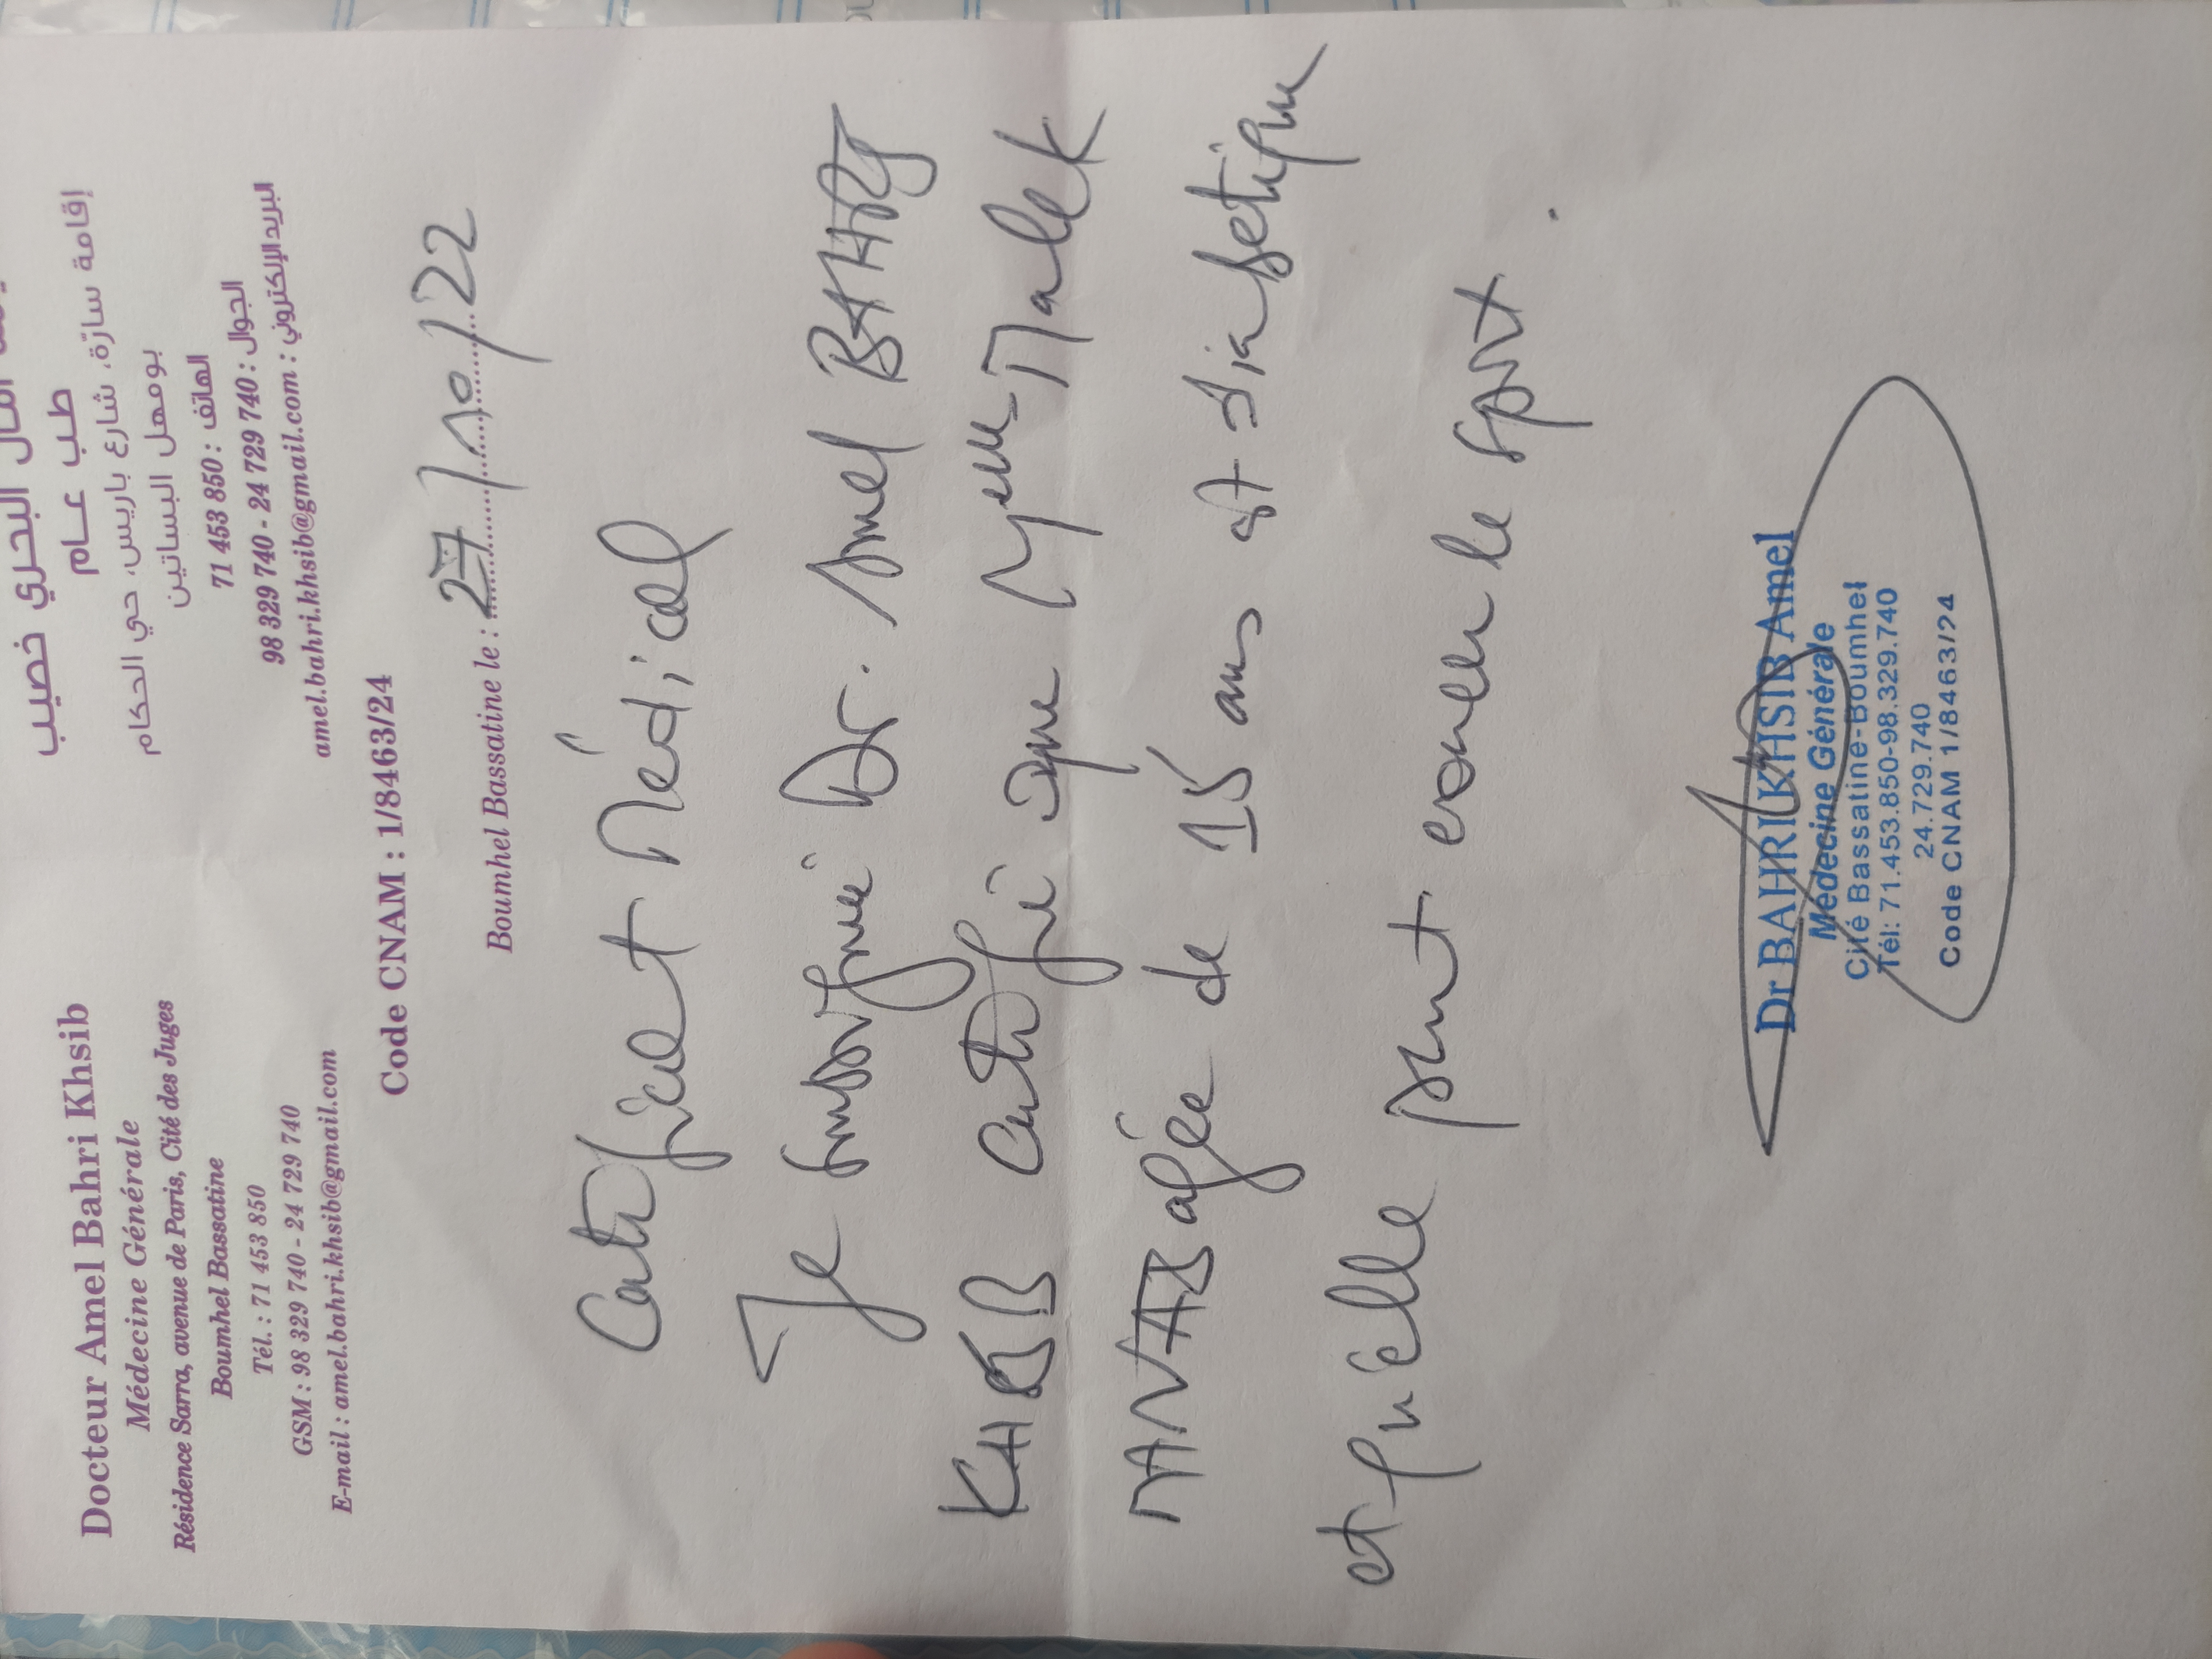 Docteur Amel Bahri Khsib
Médecine Générale
Résidence Sarra, avenue de Paris, Cité des Juges
Boumhel Bassatine
Tél. : 71 453 850
GSM : 98 329 740 - 24 729 740
E-mail : amel.bahri.khsib@gmail.com
البحري خصيب
طب عام
إقامة سارة، شارع باريس، حي الحكام
بومهل البساتين
الهاتف : 71 453 850
الجوال : 98 329 740 - 24 729 740
البريد الإلكتروني : amel.bahri.khsib@gmail.com
Code CNAM : 1/8463/24
Boumhel Bassatine le : 27/10/22
Certificat Médical
Je soussignée Dr. Amel BAHRI
certifie que Malek
agée de 15 ans est diabetique
et qu'elle peut exercer le sport.
Dr BAHRI KHSIB Amel
Médecine Générale
Cité Bassatine-Boumhel
Tél: 71.453.850-98.329.740
24.729.740
Code CNAM 1/8463/24